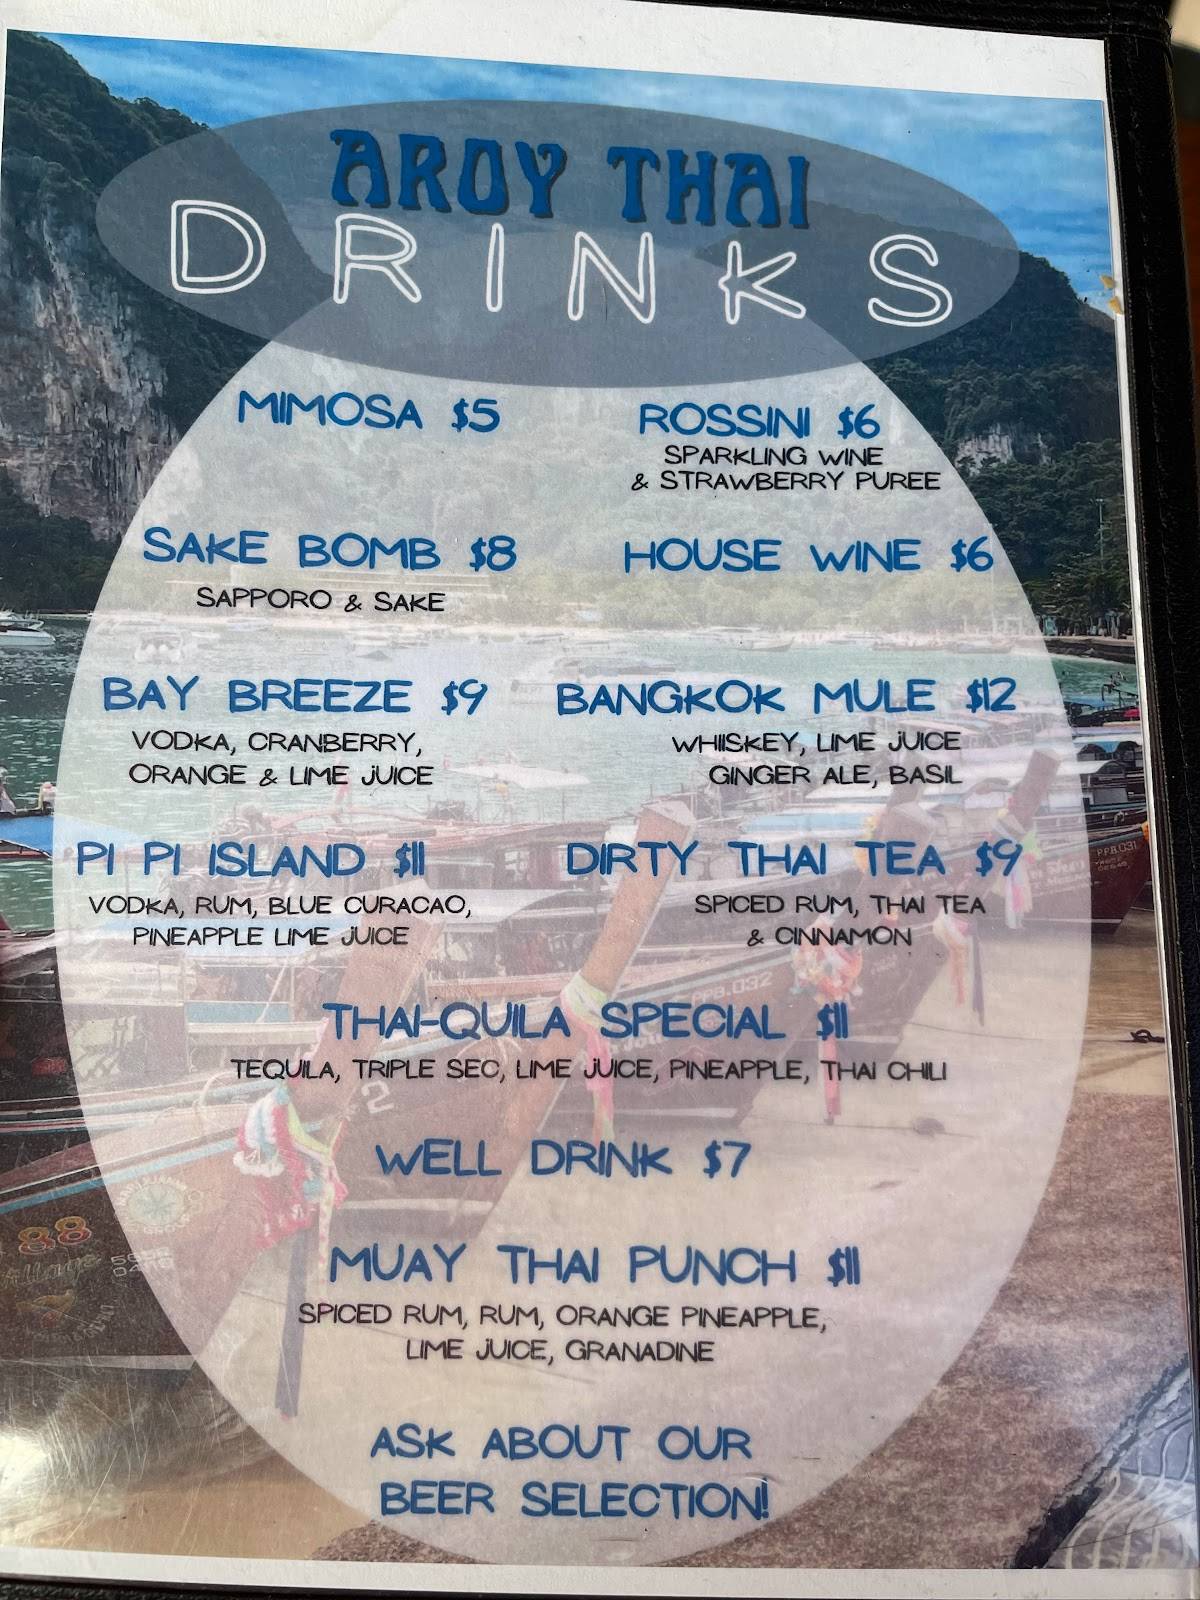 AROY THAI
DRINKS
MIMOSA $5
ROSSINI $6
SPARKLING WINE
& STRAWBERRY PUREE
SAKE BOMB $8
SAPPORO & SAKE
HOUSE WINE $6
BAY BREEZE $9
VODKA, CRANBERRY,
ORANGE & LIME JUICE
BANGKOK MULE $12
WHIISKEY, LIME JUICE
GINGER ALE, BASIL
PI PI ISLAND $11
VODKA, RUM, BLUE CURACAO,
PINEAPPLE LIME JUICE
DIRTY THAI TEA $9
SPICED RUM, THAI TEA
& CINNAMON
THAI-QUILA SPECIAL $11
TEQUILA, TRIPLE SEC, LIME JUICE, PINEAPPLE, THAI CHILI
WELL DRINK $7
MUAY THAI PUNCH $11
SPICED RUM, RUM, ORANGE PINEAPPLE,
LIME JUICE, GRANADINE
ASK ABOUT OUR
BEER SELECTION!
PPB.031
PPB.032
2
88